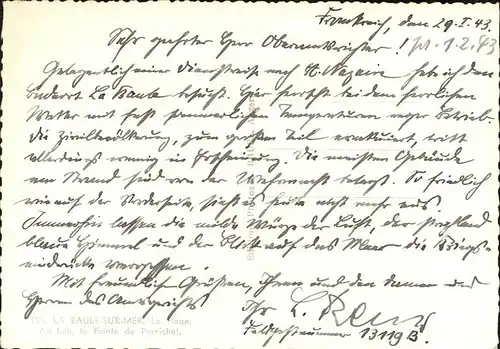 Frankreich, den 29.I.43.
Sehr geehrter Herr Oberamtsrichter! pr. 1.2.43
Gelegentlich einer Dienstreise nach St. Nazaire habe ich den
Badeort La Baule besucht. Hier herrscht bei dem herrlichen
Wetter mit fast sommerlichen Temperaturen reger Betrieb.
Die Zivilbevölkerung, zum großen Teil evakuiert, tritt
allerdings wenig in Erscheinung. Die meisten Gebäude
am Strand sind von der Wehrmacht belegt. So friedlich
wie auf der Vorderseite, sieht es heute nicht mehr aus.
Immerhin lassen die milde Würze der Luft, der strahlend
blaue Himmel und der Blick auf das Meer die Kriegs-
eindrücke vergessen.
Mit freundlich Grüßen, Ihnen und den Damen und
Herren des Amtsgerichts
Ihr L.
Feldpostnummer 13119 B.
LA BAULE-SUR-MER. La Plage.
Au loin, la Pointe de Penchâteau.